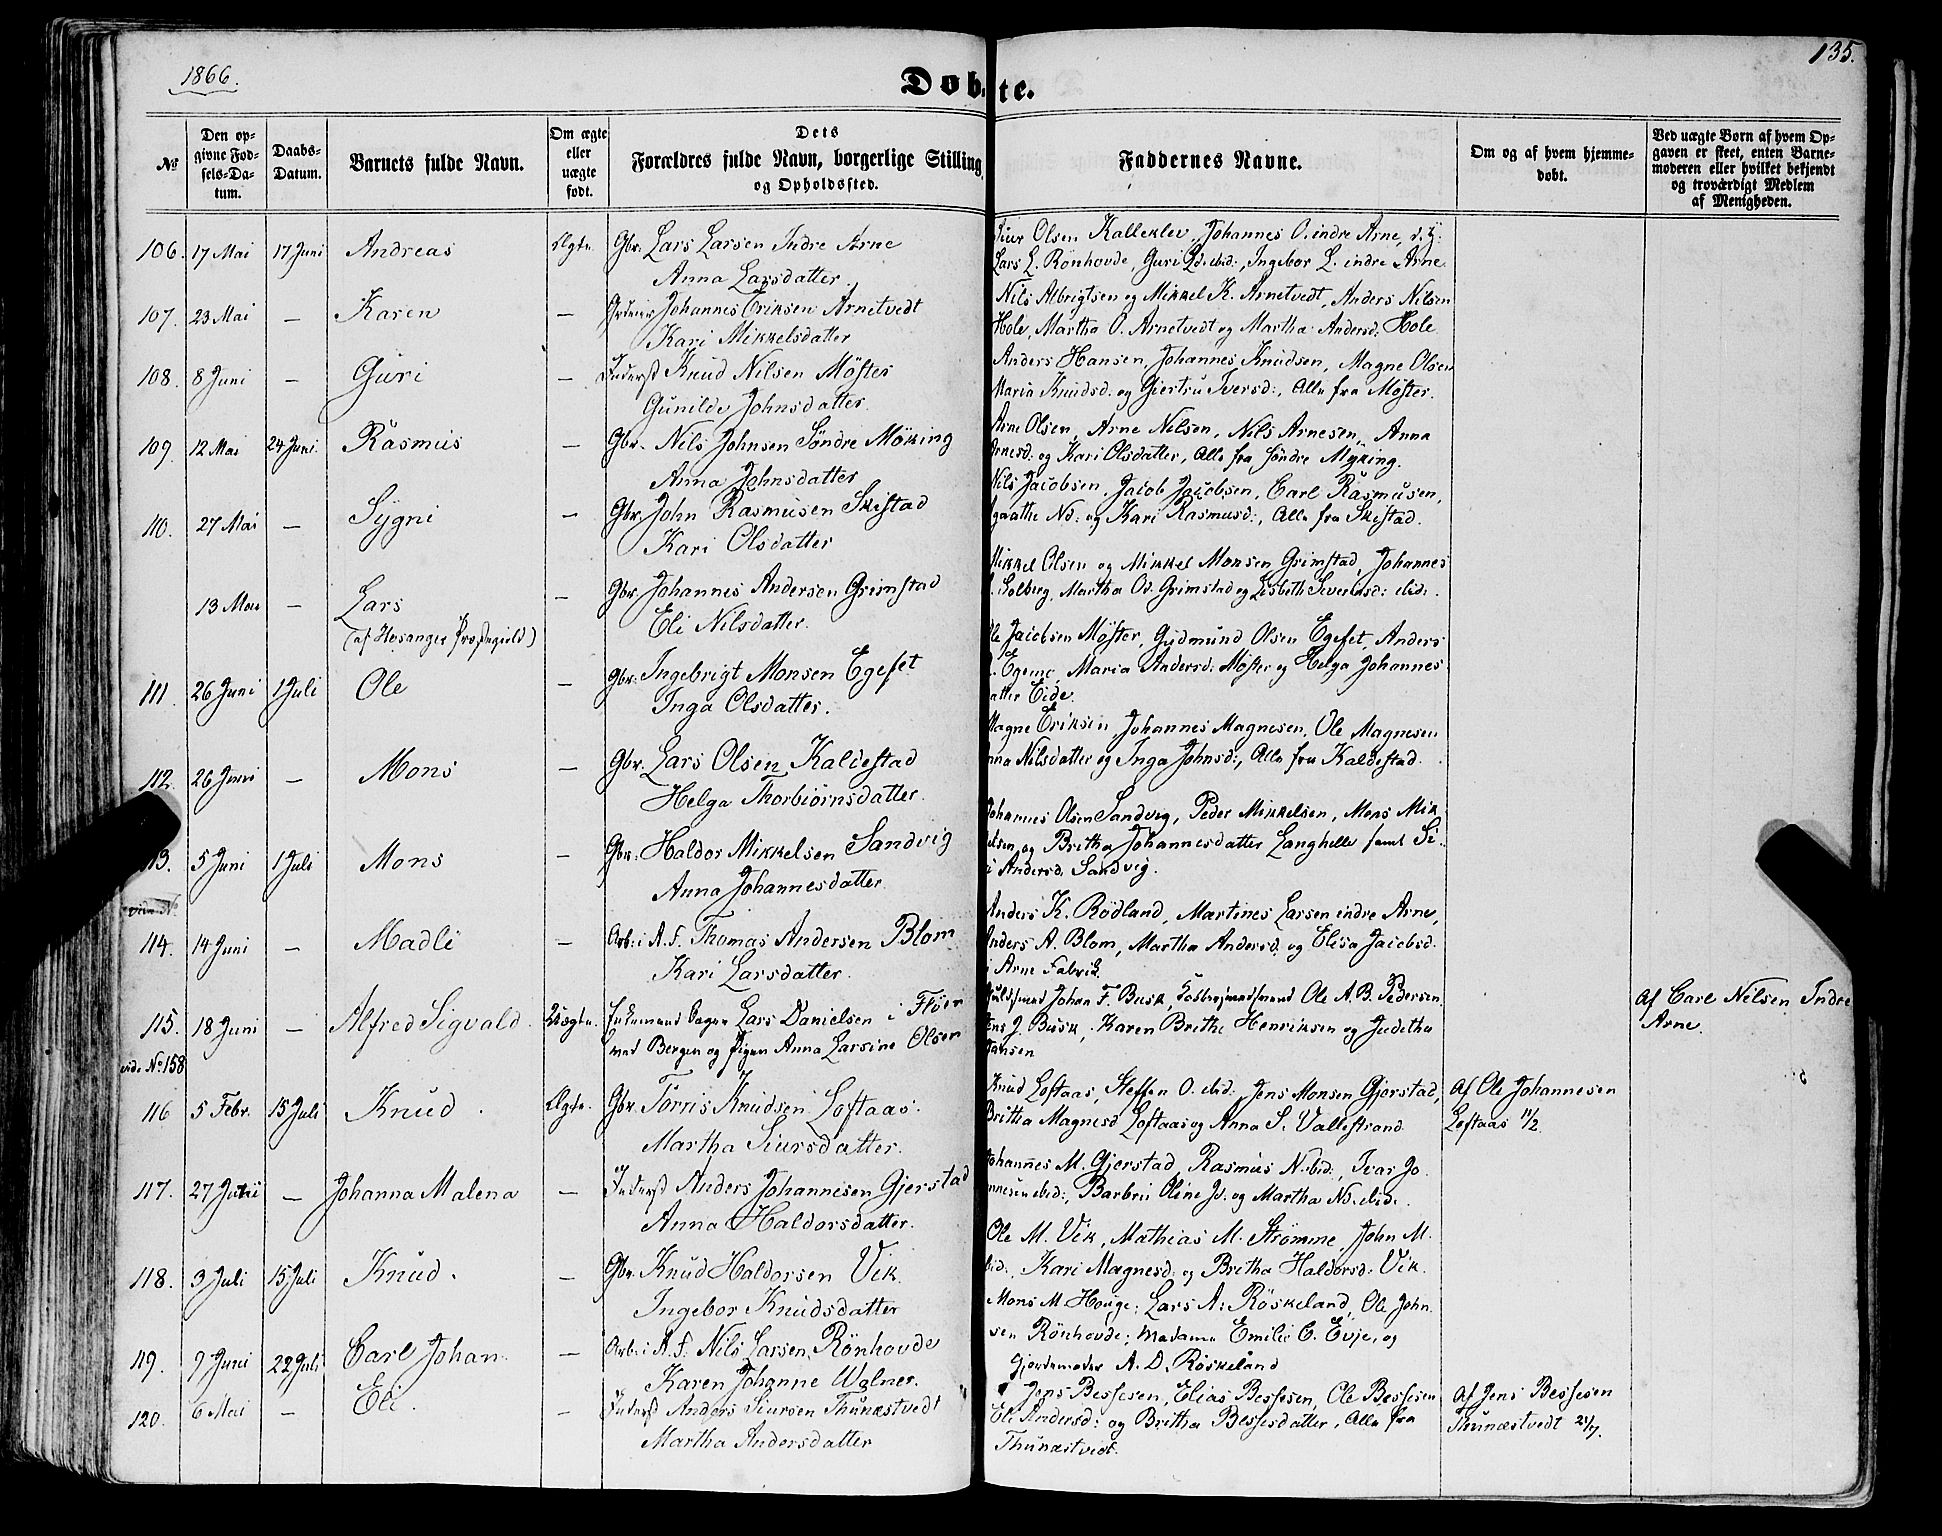 1866.
135.
Døbte.
No
Den opgivne Fødsels-Datum.
Daabs-Datum.
Barnets fulde Navn.
Om ægte eller uægte født.
Dets Forældres fulde Navn, borgerlige Stilling og Opholdssted.
Faddernes Navne.
Om og af hvem hjemmedøbt.
Ved uægte Børn af hvem Opgaven er skeet, enten Barnemoderen eller hvilket bekjendt og troværdigt Medlem af Menigheden.
106. 17 Mai 17 Juni Andreas Ægte. Gbr. Lars Larsen Indre Arne
Anna Larsdatter.
Siur Olsen Kalleklev, Johannes O. indre Arne,
Lars L. Rønhovde, Guri Ld. ibid:, Ingebor L. indre Arne
107. 23 Mai — Karen — Johannes Eriksen Arnetvedt
Kari Mikkelsdatter
Nils Albrigtsen og Mikkel K. Arnetvedt, Anders Nilsen
Hole, Martha O. Arnetvedt og Martha Andersd: Hole
108. 8 Juni — Guri — Inderst Knud Nilsen Møster
Gunilde Johnsdatter.
Anders Hansen, Johannes Knudsen, Magne Olsen
Maria Knudsd. og Giertru Iversd:, Alle fra Møster.
109. 12 Mai 24 Juni. Rasmus — Gbr. Nils Johnsen Søndre Møking
Anna Johnsdatter
Arne Olsen, Arne Nilsen, Nils Arnesen, Anna
Arnesd: og Kari Olsdatter, Alle fra søndre Myking.
110. 27 Mai — Sygni — Gbr. John Rasmusen Skistad
Kari Olsdatter
Nils Jacobsen, Jacob Jacobsen, Carl Rasmusen,
Agaathe Nd: og Kari Rasmusd:, Alle fra Skistad.
13 Mai — Lars — Gbr. Johannes Andersen Grimstad
(af Hosanger Præstegield) Eli Nilsdatter.
Mikkel Olsen og Mikkel Monsen Grimstad, Johannes
Solberg, Martha Od. Grimstad og Lisbeth Severinsd: ibid:.
111. 26 Juni 1 Juli Ole — Gbr: Ingebrigt Monsen Egeset
Inga Olsdatter.
Ole Jacobsen Møster, Gudmund Olsen Egeset, Anders
Egeme, Maria Andersd: Møster og Helga Johannes
datter Eide.
112. 26 Juni — Mons — Gbr. Lars Olsen Kaldestad
Helga Thorbiørnsdatter.
Magne Eriksen, Johannes Magnesen, Ole Magnesen
Anna Nilsdatter og Inga Johnsd:, Alle fra Kaldestad.
113. 5 Juni 1 Juli Mons — Gbr. Haldor Mikkelsen Sandvig
Anna Johannesdatter
Johannes Olsen Sandvig, Peder Mikkelsen, Mons Mik
kelsen og Britha Johannesdatter Langhelle samt Si
ri Andersd. Sandvig.
vide No
114. 14 Juni — Madli — Arb. i A. F. Thomas Andersen Blom
Kari Larsdatter.
Anders K. Rødland, Martines Larsen indre Arne,
Anders A. Blom, Martha Andersd. og Elisa Jacobsd.
i Arne Fabrik
115. 18 Juni — Alfred Sigvald. Uægte. Enkemand Lars Danielsen i
Bergen og Pigen Anna Larsine Olsen
vide No 158
Johan F. Busk, Ole A. B. Pedersen,
Jens J. Busk, Karen Brithe Henriksen og Juditha
Hansen
Af Carl Nilsen Indre
Arne.
116 5 Febr. 15 Juli Knud. Ægte. Gbr. Tørris Knudsen Loftaas.
Martha Siursdatter.
Knud Loftaas, Steffen O. ibid:, Jens Monsen Gjerstad,
Britha Magnesd Loftaas og Anna S. Vallestrand
Af Ole Johannesen
Loftaas 11/2.
117. 27 Juni — Johanna Malena — Inderst Anders Johannesen Gjerstad
Anna Haldorsdatter.
Johannes M. Gjerstad, Rasmus N. ibid:, Ivar Jo
hannesen ibid:, Barbru Oline Jd. og Martha Nd. ibid:
118. 3 Juli 15 Juli Knud. — Gbr Knud Haldorsen Vik
Ingebor Knudsdatter
Ole M. Vik, Mathias M. Strømme, John M.
ibid:, Kari Magnesd: og Britha Haldorsd: Vik.
119. 7 Juni 22 Juli Carl Johan. — Arb: i A. F. Nils Larsen Rønhovde
Karen Johanne Walner.
Mons M. Houge, Lars A: Røskeland, Ole John
sen Rønhovde; Madame Emilie C. Evje, og
Gjordemoder A. D. Røskeland
120. 6 Mai — Eli. — Inderst Anders Siursen Thunæstvedt
Martha Andersdatter
Jens Bessesen, Elias Bessesen, Ole Bessesen
Eli Andersd: og Britha Bessesdatter, Alle fra
Thunæstvedt.
Af Jens Bessesen
Thunæstvedt 21/7.